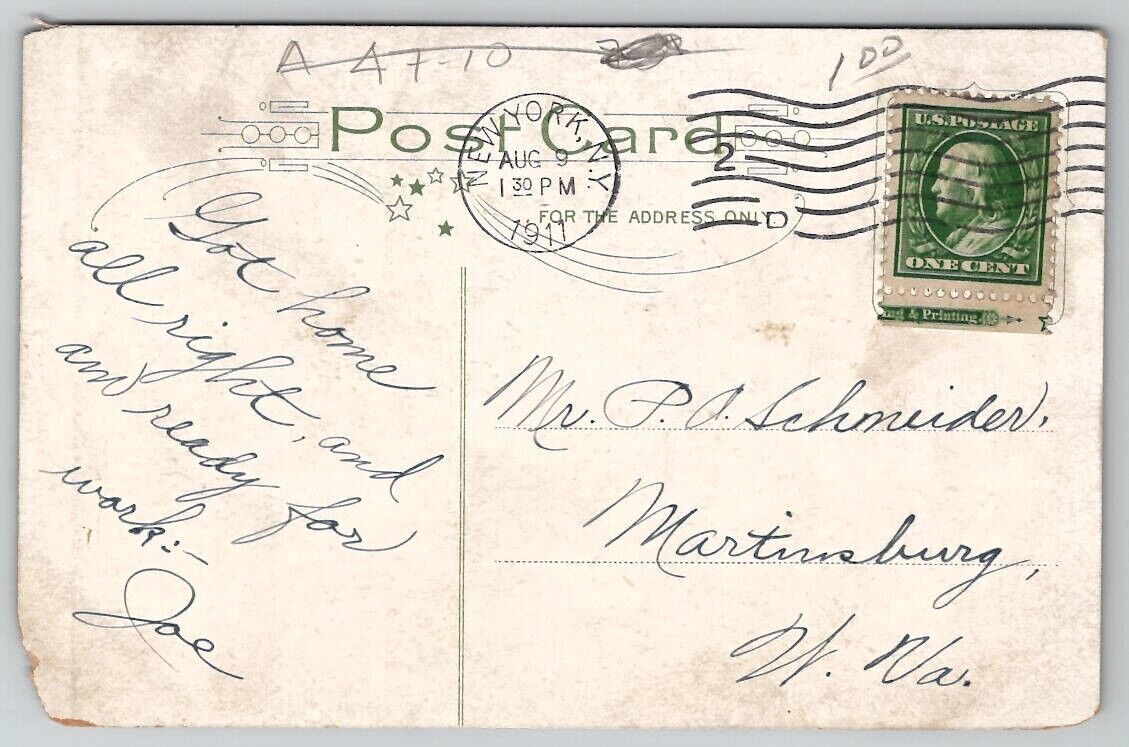 A A7-10
1 00
Post Card
FOR THE ADDRESS ONLY
NEW YORK, N.Y.
AUG 9
1 30 PM
1911
2
D
U.S. POSTAGE
ONE CENT
& Printing
Got home
all right, and
and ready for
work:-
Joe
Mr. P. O. Schneider,
Martinsburg,
W. Va.